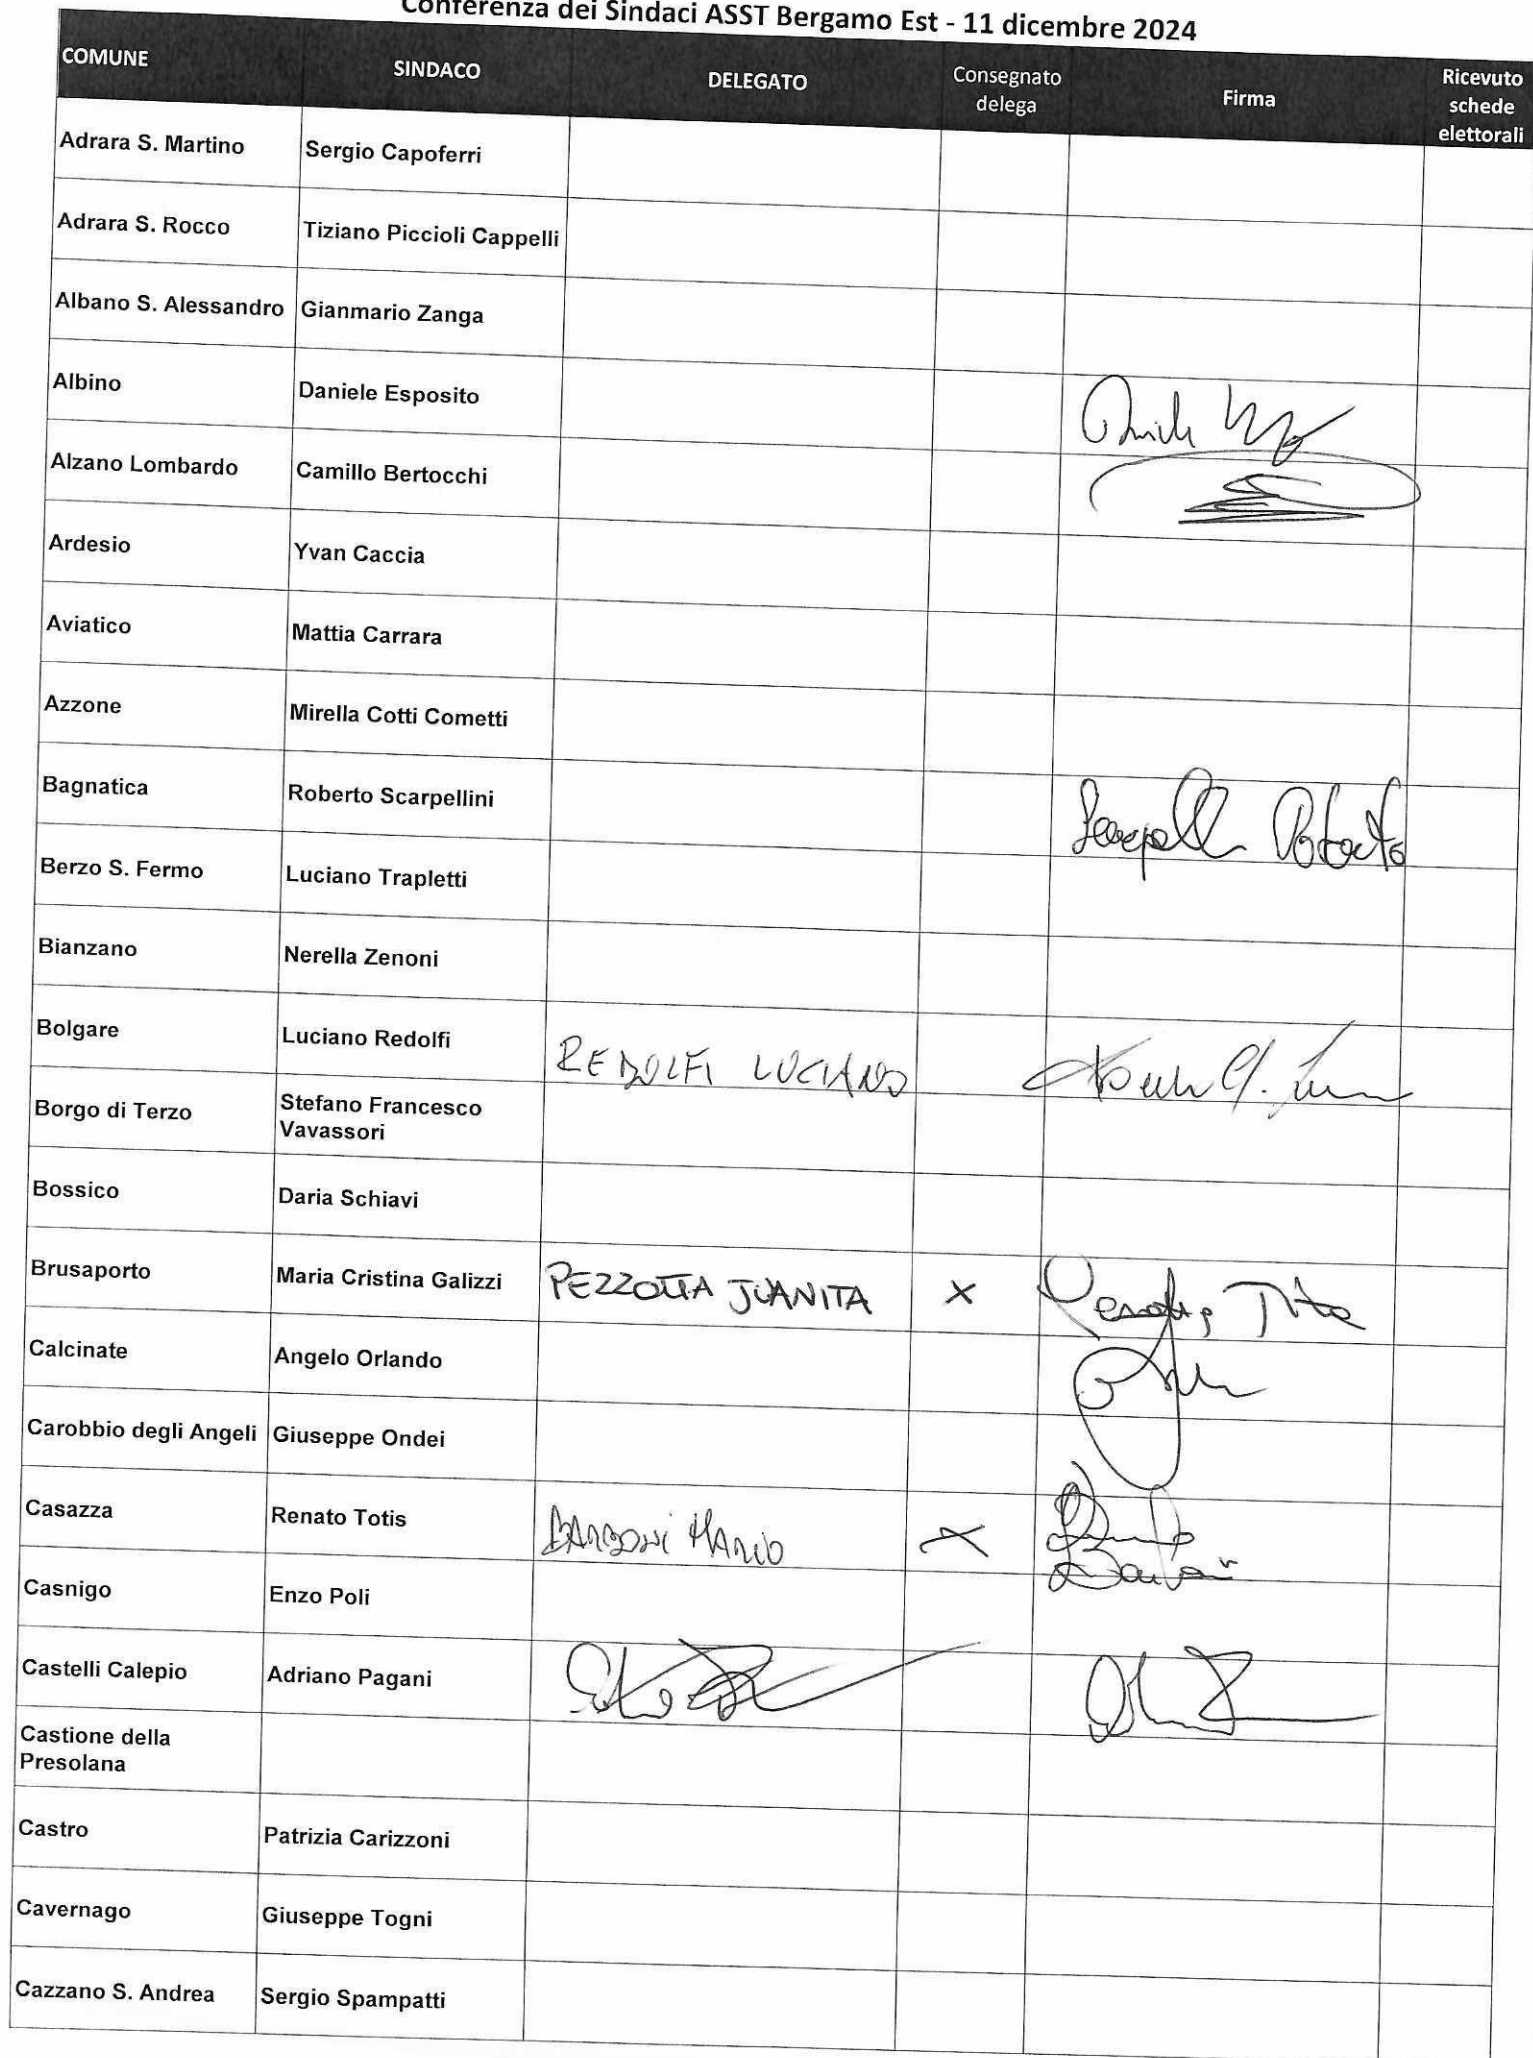 Conferenza dei Sindaci ASST Bergamo Est - 11 dicembre 2024
COMUNE SINDACO DELEGATO Consegnato delega Firma Ricevuto schede elettorali
Adrara S. Martino Sergio Capoferri
Adrara S. Rocco Tiziano Piccioli Cappelli
Albano S. Alessandro Gianmario Zanga
Albino Daniele Esposito
Alzano Lombardo Camillo Bertocchi
Ardesio Yvan Caccia
Aviatico Mattia Carrara
Azzone Mirella Cotti Cometti
Bagnatica Roberto Scarpellini
Berzo S. Fermo Luciano Trapletti
Bianzano Nerella Zenoni
Bolgare Luciano Redolfi REDOLFI LUCIANO
Borgo di Terzo Stefano Francesco Vavassori
Bossico Daria Schiavi
Brusaporto Maria Cristina Galizzi PEZZOTTA JUANITA X
Calcinate Angelo Orlando
Carobbio degli Angeli Giuseppe Ondei
Casazza Renato Totis BARBONI MARIO X
Casnigo Enzo Poli
Castelli Calepio Adriano Pagani
Castione della Presolana
Castro Patrizia Carizzoni
Cavernago Giuseppe Togni
Cazzano S. Andrea Sergio Spampatti